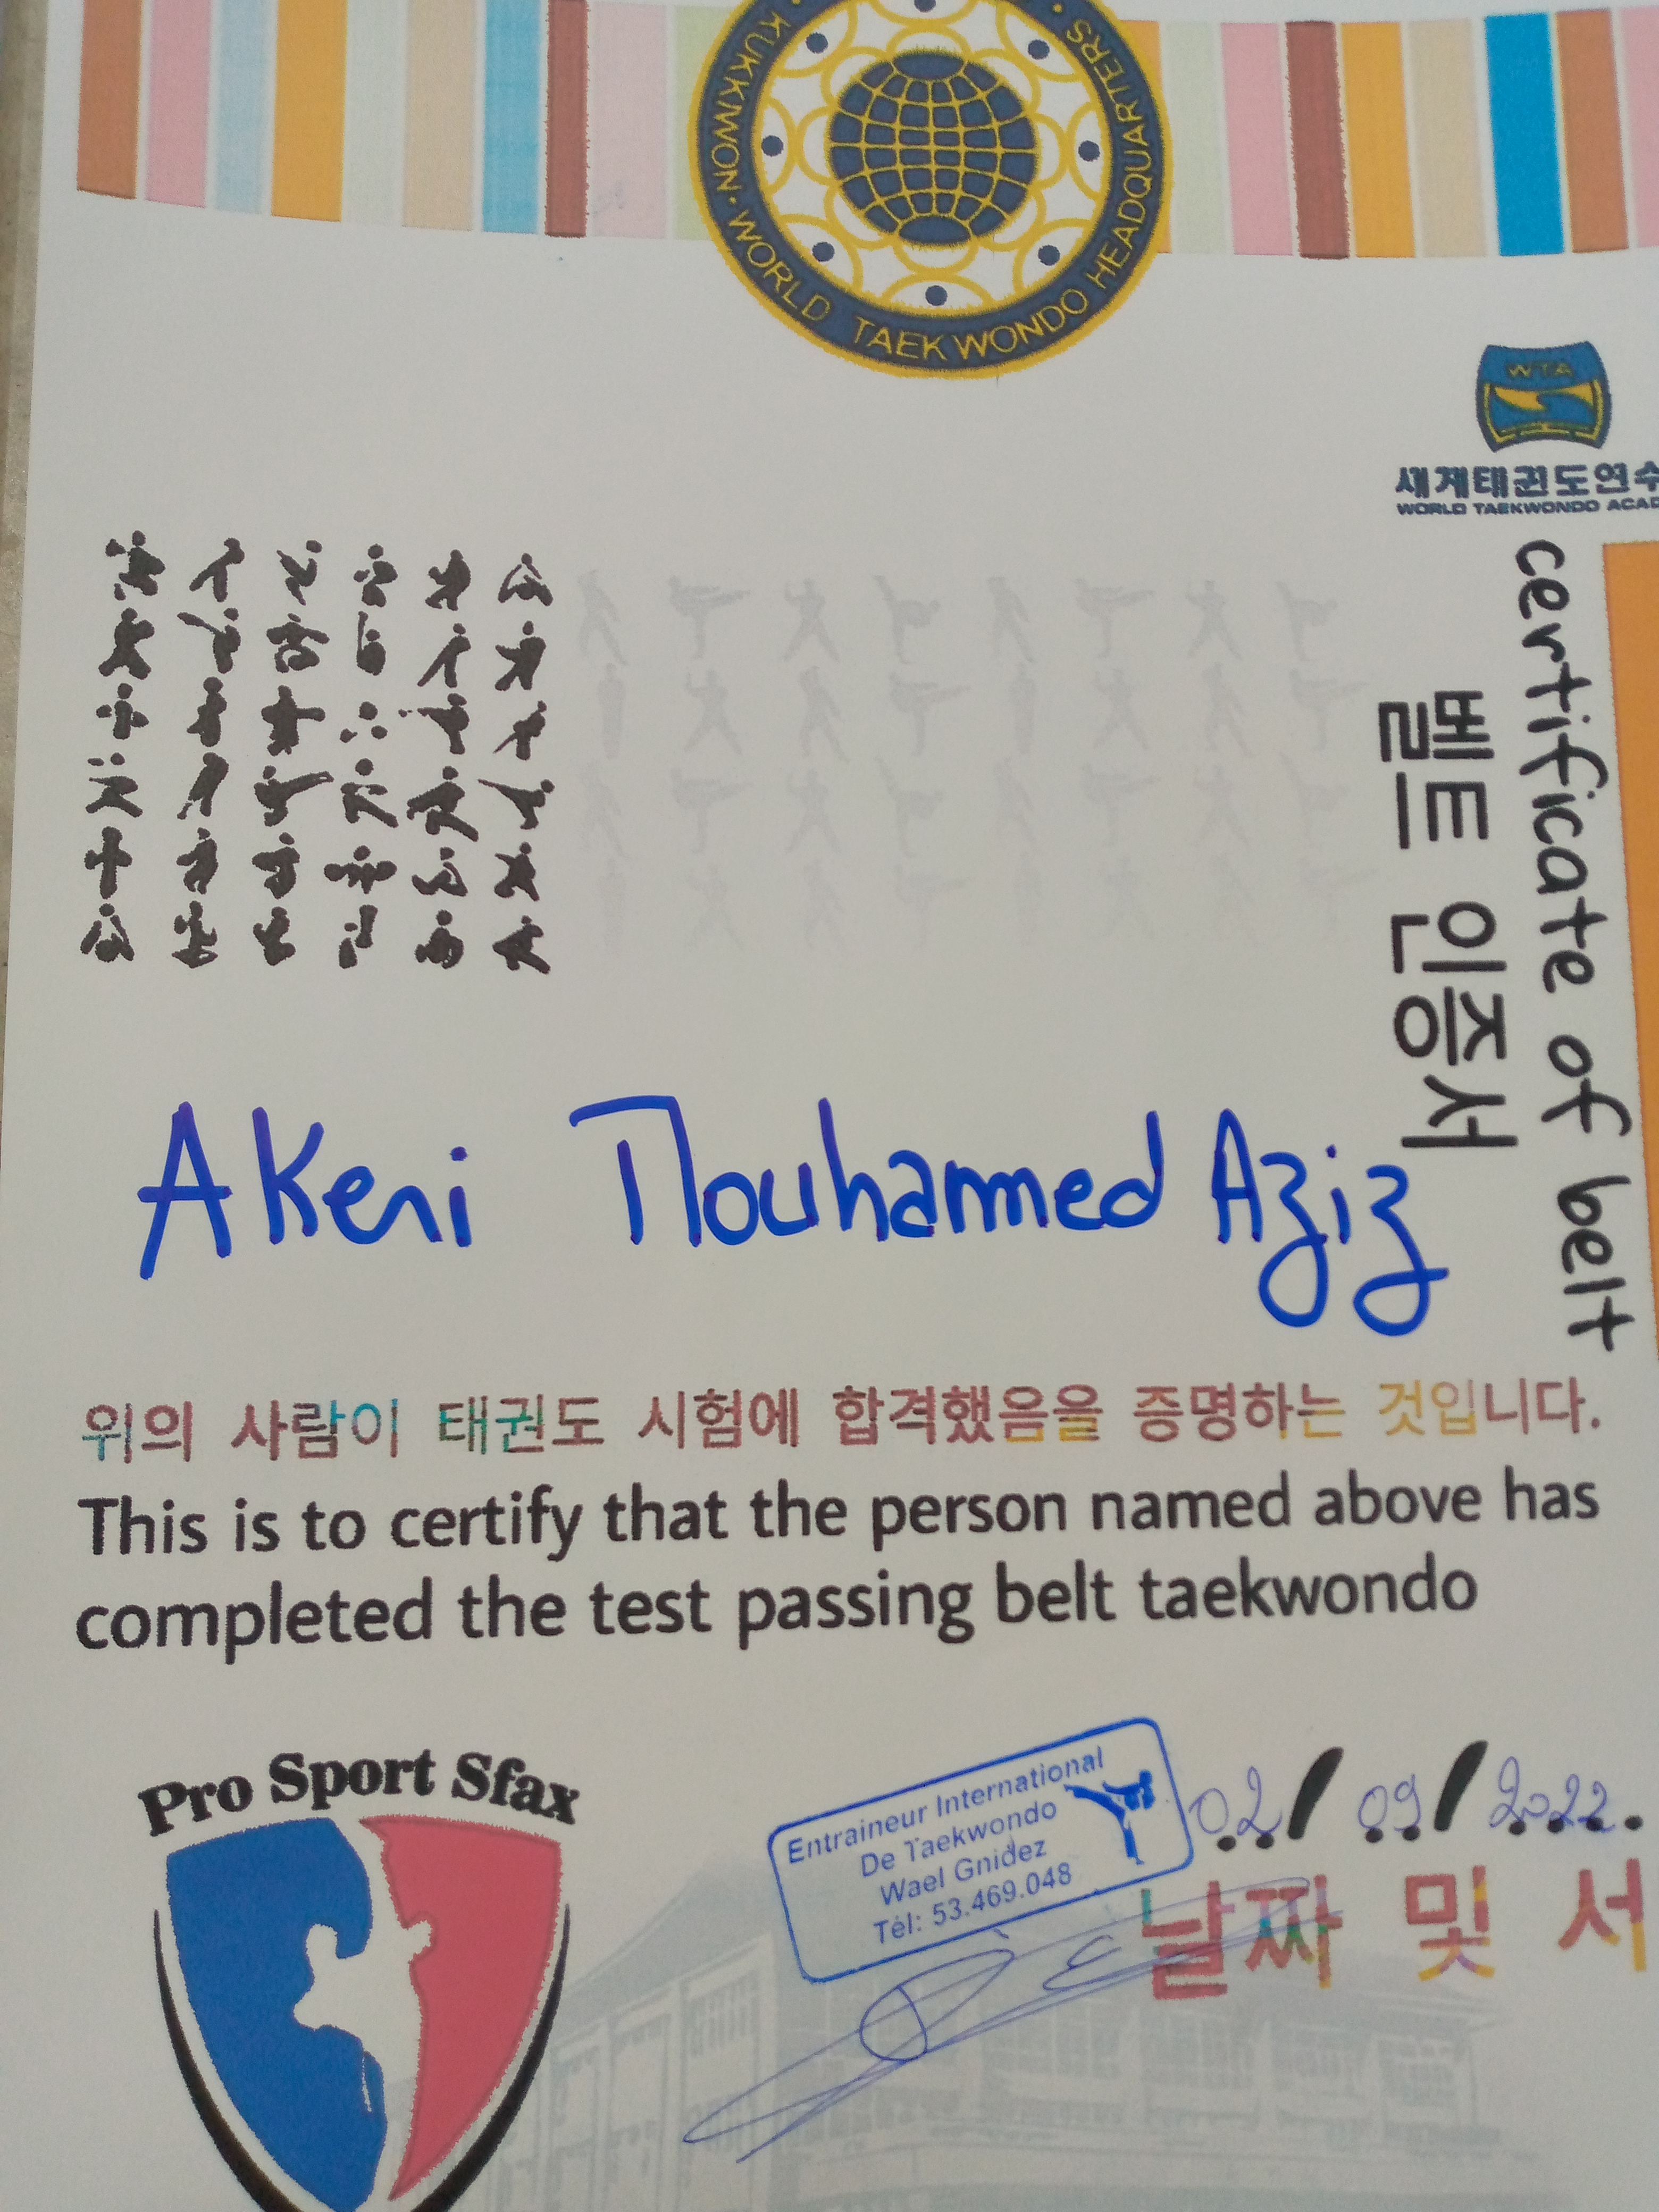 KUKKIWON · WORLD TAEKWONDO HEADQUARTERS ·
WTA
세계태권도연수
WORLD TAEKWONDO ACAD
certificate of belt
벨트 인증서
Akeri Mouhammed Aziz
위의 사람이 태권도 시험에 합격했음을 증명하는 것입니다.
This is to certify that the person named above has
completed the test passing belt taekwondo
Pro Sport Sfax
Entraineur International
De Taekwondo
Wael Gnidez
Tél: 53.469.048
02/09/2022.
날짜 및 서